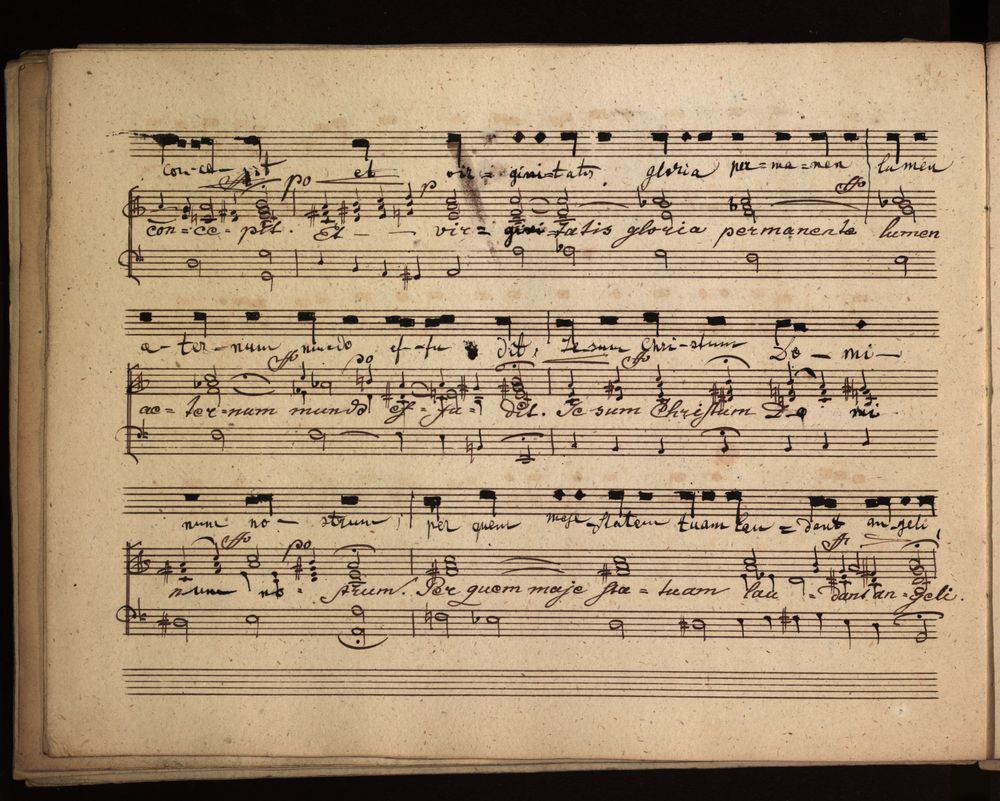 con-ce-pit et vir= gini=tatis gloria per=ma=nen lumen
ffo po p ffo
con=ce=pit. Et — — vir= gini=tatis gloria permanente lumen
ae-ter-num mundo ef-fu dit, Jesum Chri-stum Do-mi-
ffo po ffo
ae=ter=num mundo Ef=fu= dit. Je sum Christum Do mi
num no- strum, per quem maje-statem tuam lau=dant an-geli,
ffo po ffo
num no= strum. Per quem maje sta=tuam lau=dant an=geli.